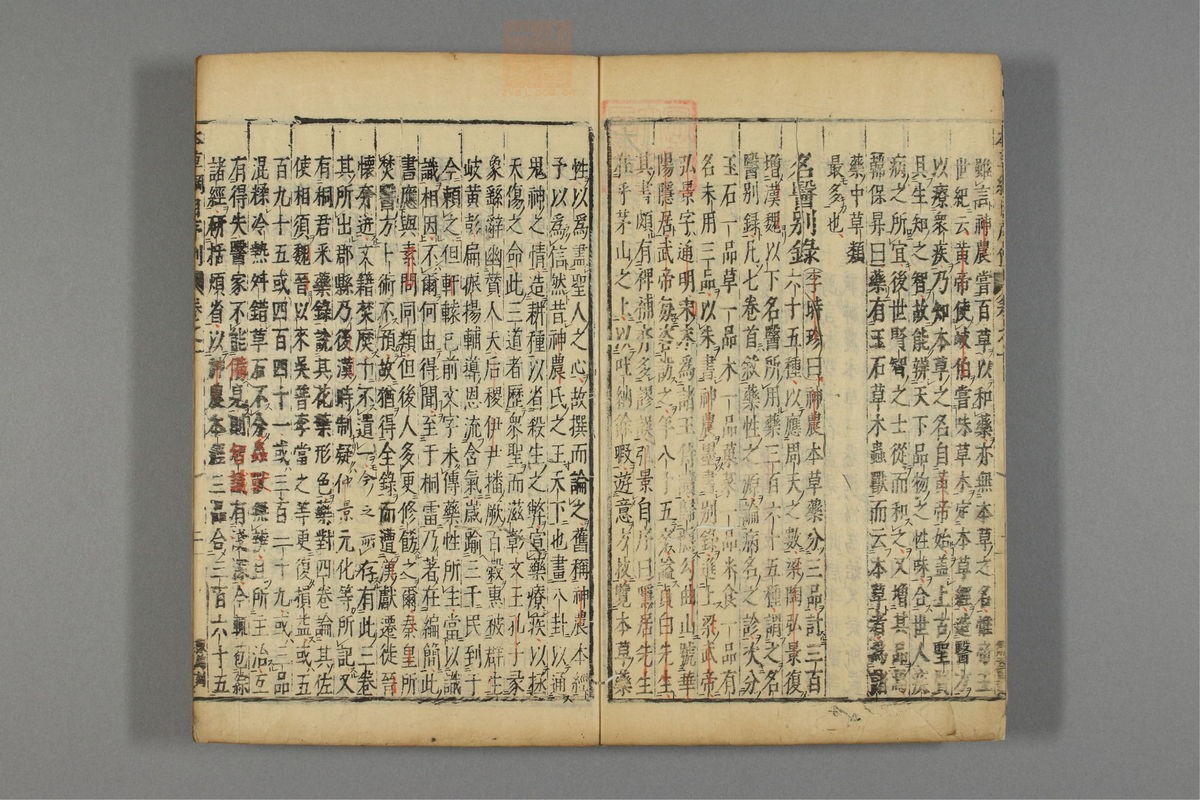 雖言神農嘗百草以和藥亦無本草之名惟帝王
世紀云黃帝使岐伯嘗味草木定本草經造醫方
以療衆疾乃知本草之名自黃帝始盖上古聖賢
具生知之智故能辨天下品物之性味合世人疾
病之所宜後世賢智之士從而和之又增其品焉
韓保昇曰藥有玉石草木蟲獸而云本草者爲諸
藥中草類
最多也
名醫別錄李時珍曰神農本草藥分三品計三百
六十五種以應周天之數梁陶弘景復
增漢魏以下名醫所用藥三百六十五種謂之名
醫別録凡七卷首敘藥性之源論病名之診次分
玉石一品草一品木一品菓菜一品米食一品有
名未用三品以朱書神農墨書別錄進上梁武帝
弘景字通明宋末爲諸王侍讀歸隱勾曲山號華
陽隱居武帝每咨訪之年八十五卒諡貞白先生
其書頗有裨補亦多謬誤弘景自序曰隱居先生
在乎茅山之上以吐納餘暇遊意方技覽本草藥
性以爲盡聖人之心故撰而論之舊稱神農本經
予以爲信然昔神農氏之王天下也畫八卦以通
鬼神之情造耕種以省殺生之弊宣藥療疾以拯
夭傷之命此三道者歷衆聖而滋彰文王孔子彖
象繇辭幽贊人天后稷伊尹播厥百穀惠被群生
岐黃彭扁振揚輔導恩流含氣歲踰三千民到于
今賴之但軒轅已前文字未傳藥性所主當以識
識相因不爾何由得聞至于桐雷乃著在編簡此
書應與素問同類但後人多更修飭之爾秦皇所
焚醫方卜術不預故猶得全錄而遭漢獻遷徙晉
懷奔迸文籍焚糜千不遺一今之所存有此三卷
其所出郡縣乃後漢時制疑仲景元化等所記又
有桐君采藥錄說其花葉形色藥對四卷論其佐
使相須魏晉以來吳普李當之等更復損益或五
百九十五或四百四十一或三百一十九或三品
混糅冷熱舛錯草石不分蟲獸無辨且所主治互
有得失醫家不能備見則智識有淺深今輒苞綜
諸經研括煩省以神農本經三品合三百六十五